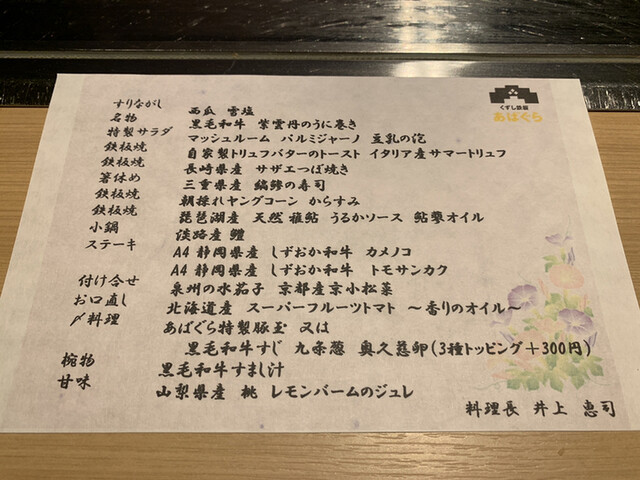 くずし鉄板
あばぐら
すりながし 西瓜 雪塩
名物 黒毛和牛 紫雲丹のうに巻き
特製サラダ マッシュルーム パルミジャーノ 豆乳の泡
鉄板焼 自家製トリュフバターのトースト イタリア産サマートリュフ
鉄板焼 長崎県産 サザエつぼ焼き
箸休め 三重県産 縞鯵の寿司
鉄板焼 朝採れヤングコーン からすみ
鉄板焼 琵琶湖産 天然 稚鮎 うるかソース 鮎魚醤オイル
小鍋 淡路産 鱧
ステーキ A4 静岡県産 しずおか和牛 カメノコ
A4 静岡県産 しずおか和牛 トモサンカク
付け合せ 泉州の水茄子 京都産京小松菜
お口直し 北海道産 スーパーフルーツトマト 〜香りのオイル〜
〆料理 あばぐら特製豚玉 又は
黒毛和牛すじ 九条葱 奥久慈卵(3種トッピング+300円)
椀物 黒毛和牛すまし汁
甘味 山梨県産 桃 レモンバームのジュレ
料理長 井上 恵司